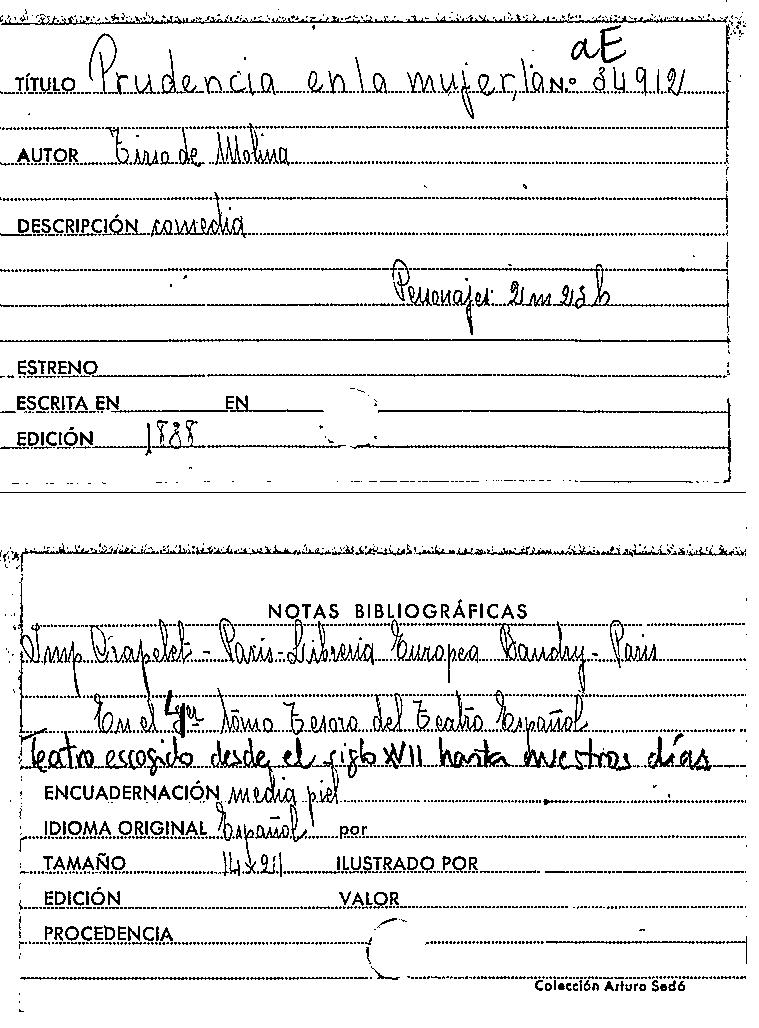 aE
TÍTULO Prudencia en la mujer, la N.º 34912
AUTOR Tirso de Molina
DESCRIPCIÓN comedia
Personajes: 2 m 23 h
ESTRENO
ESCRITA EN EN
EDICIÓN 1838
NOTAS BIBLIOGRÁFICAS
Imp Crapelet - Paris - Libreria Europea Baudry - Paris
En el tomo Tesoro del Teatro Español
Teatro escogido desde el siglo XVII hasta nuestros días
ENCUADERNACIÓN media piel
IDIOMA ORIGINAL Español por
TAMAÑO 14x21 ILUSTRADO POR
EDICIÓN VALOR
PROCEDENCIA
Colección Arturo Sedó